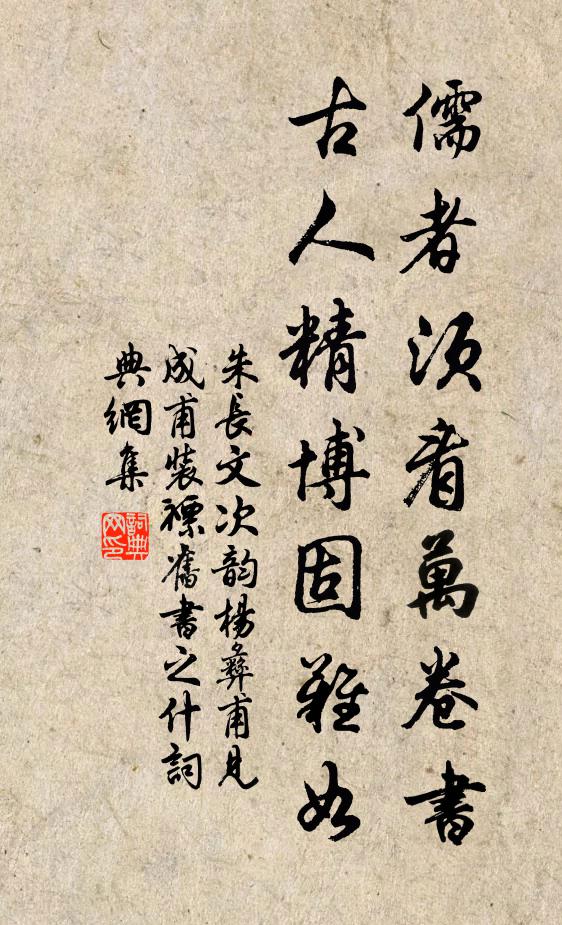 儒者須看萬卷書
古人精博固難如
朱長文次韵楊彜甫見
成甫裝褾舊書之什詞
典網集
詞典網印